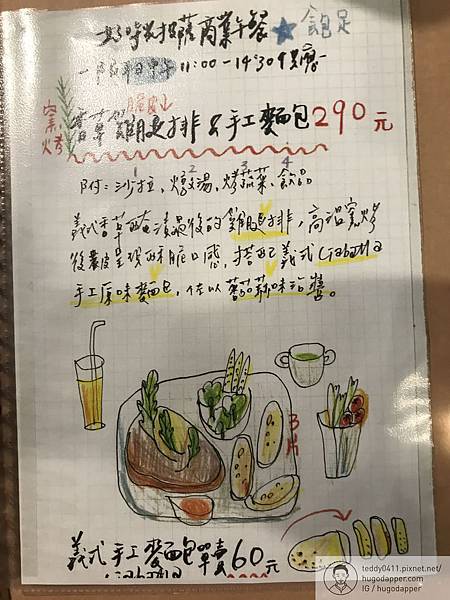 好啾披薩商業午餐 ★飽足
一限平日中午 11:00-14:30供應
脆皮
窯烤 香草雞腿排 & 手工麵包 290元
1 2 3 4
附:沙拉,燉湯,烤蔬菜,飲品
義式香草醃漬最後的雞腿排,高溫窯烤
後表皮呈現酥脆口感,搭配義式Ciabatta
手工原味麵包,佐以蘑菇
3片
義式手工麵包單賣60元
Ciabatta
teddy0411.pixnet.net/
hugodapper.com
IG / hugodapper